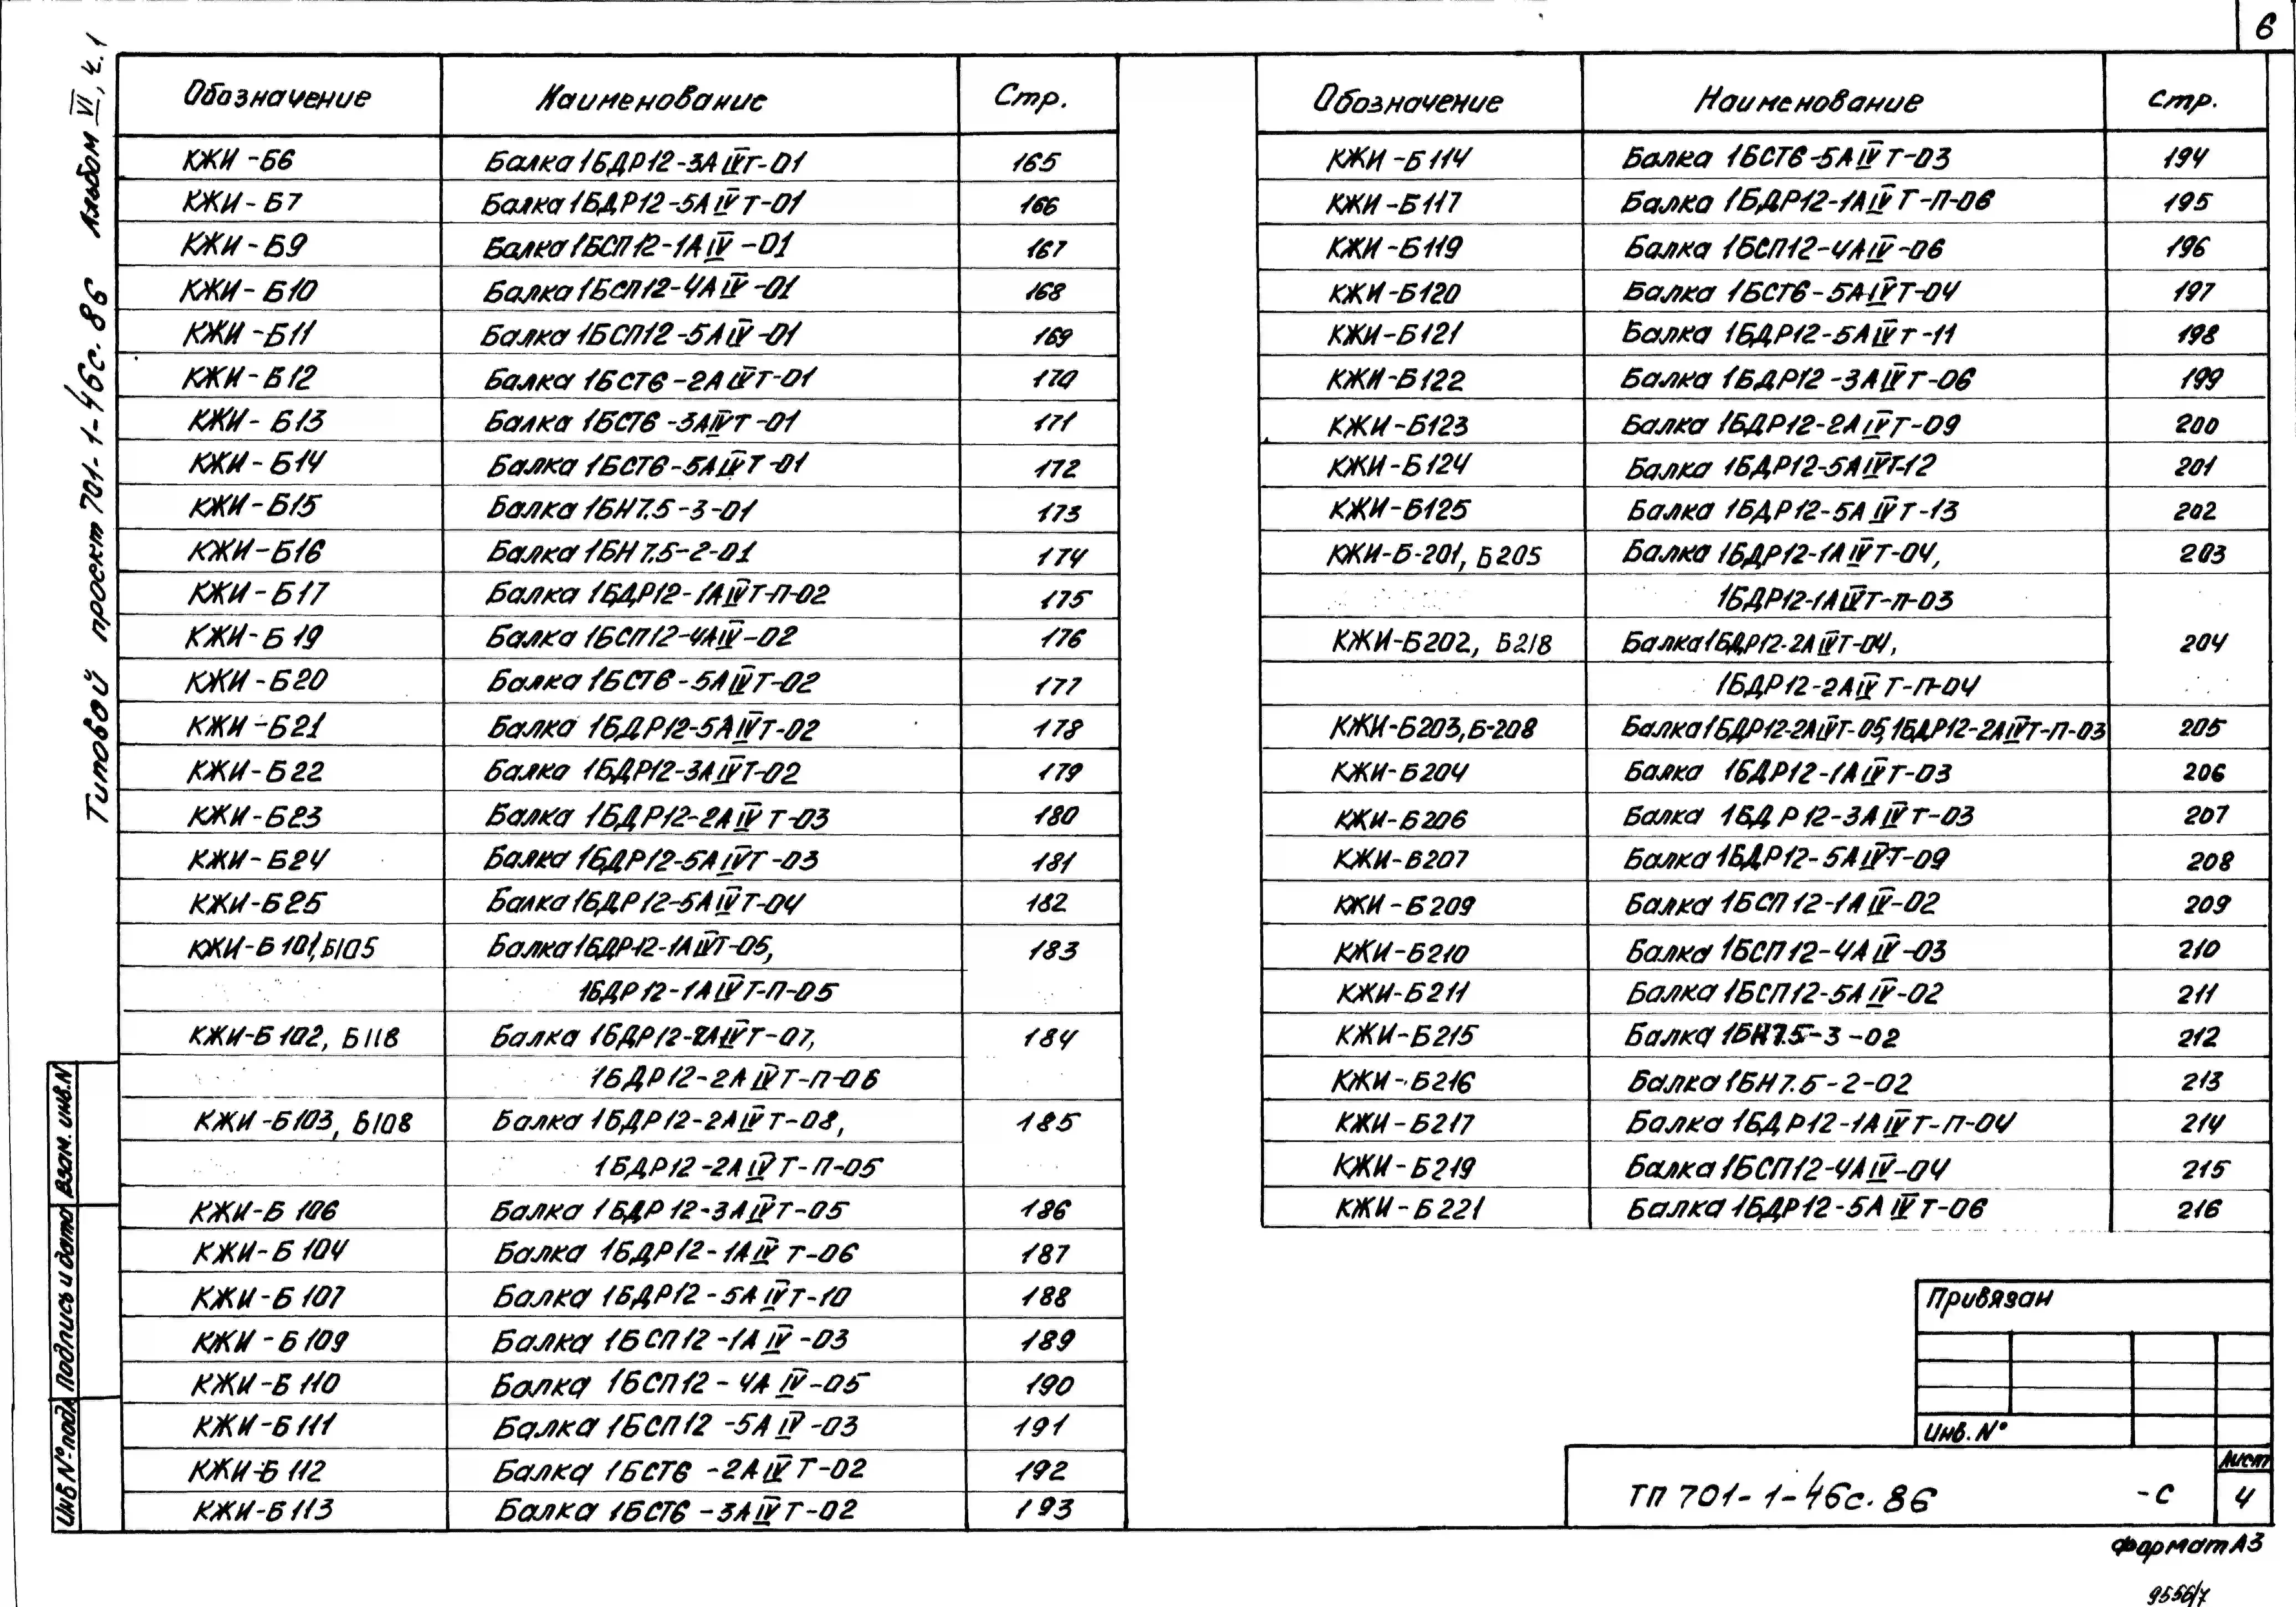 6
Типовой проект 701-1-46с.86 Альбом VI, ч.1
Обозначение Наименование Стр.
КЖИ-Б6 Балка 1БДР12-3АIVТ-01 165
КЖИ-Б7 Балка 1БДР12-5АIVТ-01 166
КЖИ-Б9 Балка 1БСП12-1АIV-01 167
КЖИ-Б10 Балка 1БСП12-4АIV-01 168
КЖИ-Б11 Балка 1БСП12-5АIV-01 169
КЖИ-Б12 Балка 1БСТ6-2АIVТ-01 170
КЖИ-Б13 Балка 1БСТ6-3АIVТ-01 171
КЖИ-Б14 Балка 1БСТ6-5АIVТ-01 172
КЖИ-Б15 Балка 1БН7.5-3-01 173
КЖИ-Б16 Балка 1БН7.5-2-01 174
КЖИ-Б17 Балка 1БДР12-1АIVТ-П-02 175
КЖИ-Б19 Балка 1БСП12-4АIV-02 176
КЖИ-Б20 Балка 1БСТ6-5АIVТ-02 177
КЖИ-Б21 Балка 1БДР12-5АIVТ-02 178
КЖИ-Б22 Балка 1БДР12-3АIVТ-02 179
КЖИ-Б23 Балка 1БДР12-2АIVТ-03 180
КЖИ-Б24 Балка 1БДР12-5АIVТ-03 181
КЖИ-Б25 Балка 1БДР12-5АIVТ-04 182
КЖИ-Б101, Б105 Балка 1БДР12-1АIVТ-05, 183
1БДР12-1АIVТ-П-05
КЖИ-Б102, Б118 Балка 1БДР12-2АIVТ-07, 184
1БДР12-2АIVТ-П-06
КЖИ-Б103, Б108 Балка 1БДР12-2АIVТ-08, 185
1БДР12-2АIVТ-П-05
КЖИ-Б106 Балка 1БДР12-3АIVТ-05 186
КЖИ-Б104 Балка 1БДР12-1АIVТ-06 187
КЖИ-Б107 Балка 1БДР12-5АIVТ-10 188
КЖИ-Б109 Балка 1БСП12-1АIV-03 189
КЖИ-Б110 Балка 1БСП12-4АIV-05 190
КЖИ-Б111 Балка 1БСП12-5АIV-03 191
КЖИ-Б112 Балка 1БСТ6-2АIVТ-02 192
КЖИ-Б113 Балка 1БСТ6-3АIVТ-02 193
Обозначение Наименование Стр.
КЖИ-Б114 Балка 1БСТ6-5АIVТ-03 194
КЖИ-Б117 Балка 1БДР12-1АIVТ-П-06 195
КЖИ-Б119 Балка 1БСП12-4АIV-06 196
КЖИ-Б120 Балка 1БСТ6-5АIVТ-04 197
КЖИ-Б121 Балка 1БДР12-5АIVТ-11 198
КЖИ-Б122 Балка 1БДР12-3АIVТ-06 199
КЖИ-Б123 Балка 1БДР12-2АIVТ-09 200
КЖИ-Б124 Балка 1БДР12-5АIVТ-12 201
КЖИ-Б125 Балка 1БДР12-5АIVТ-13 202
КЖИ-Б-201, Б205 Балка 1БДР12-1АIVТ-04, 203
1БДР12-1АIVТ-П-03
КЖИ-Б202, Б218 Балка 1БДР12-2АIVТ-04, 204
1БДР12-2АIVТ-П-04
КЖИ-Б203, Б-208 Балка 1БДР12-2АIVТ-05, 1БДР12-2АIVТ-П-03 205
КЖИ-Б204 Балка 1БДР12-1АIVТ-03 206
КЖИ-Б206 Балка 1БДР12-3АIVТ-03 207
КЖИ-Б207 Балка 1БДР12-5АIVТ-09 208
КЖИ-Б209 Балка 1БСП12-1АIV-02 209
КЖИ-Б210 Балка 1БСП12-4АIV-03 210
КЖИ-Б211 Балка 1БСП12-5АIV-02 211
КЖИ-Б215 Балка 1БН7.5-3-02 212
КЖИ-Б216 Балка 1БН7.5-2-02 213
КЖИ-Б217 Балка 1БДР12-1АIVТ-П-04 214
КЖИ-Б219 Балка 1БСП12-4АIV-04 215
КЖИ-Б221 Балка 1БДР12-5АIVТ-06 216
Взам. инв.N
Подпись и дата
Инв N° подл
Привязан
Инв. N°
ТП 701-1-46с.86 -С
Лист
4
Формат А3
9556/7